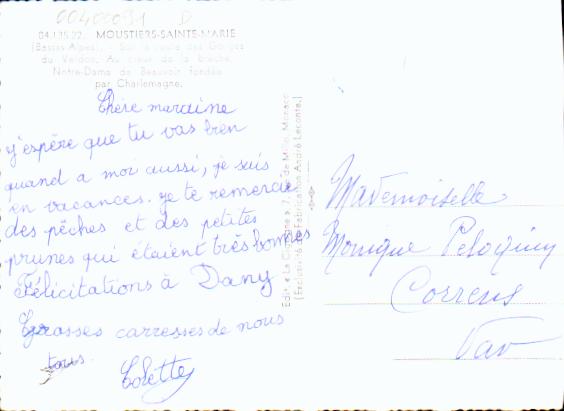 00400091 D
04.135.22. MOUSTIERS-SAINTE-MARIE
(Basses-Alpes). - Sur la route des Gorges
du Verdon. Au cœur de la brèche,
Notre-Dame de Beauvoir fondée
par Charlemagne.
Chère marraine
j'espère que tu vas bien
quand a moi aussi, je suis
en vacances. je te remercie
des pêches et des petites
prunes qui étaient très bonnes
Félicitations à Dany
Grosses carresses de nous
tous.
Colette
Edit. « La Cigogne » 7, de Millo, Monaco
(Exclusivité de Fabrication André Leconte.)
Mademoiselle
Monique
Correns
Var